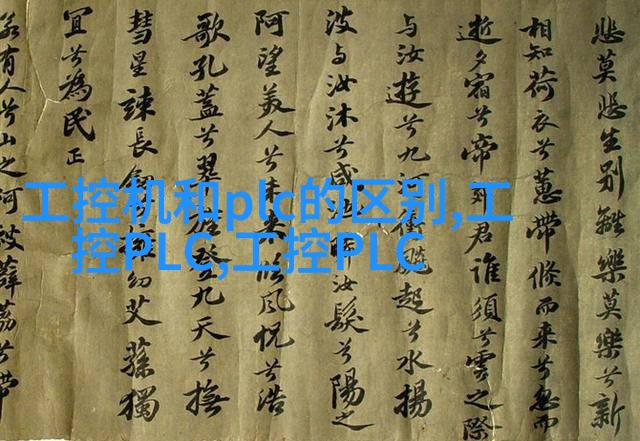 悲莫悲生別離樂莫樂兮新
相知荷衣兮蕙帶倏而來兮忽而
逝夕宿兮帝郊君誰須兮雲之際
与汝遊兮九河衝飈起兮水揚
波与汝沐兮咸池晞汝髮兮陽之
阿望美人兮未來臨風怳兮浩
歌孔蓋兮翠旌登九天兮撫
彗星竦長劍兮擁幼艾蓀獨
宜兮為民正
若有人兮山之阿被薜荔兮帶
工控机和plc的区别,工
控PLC,工控PLC